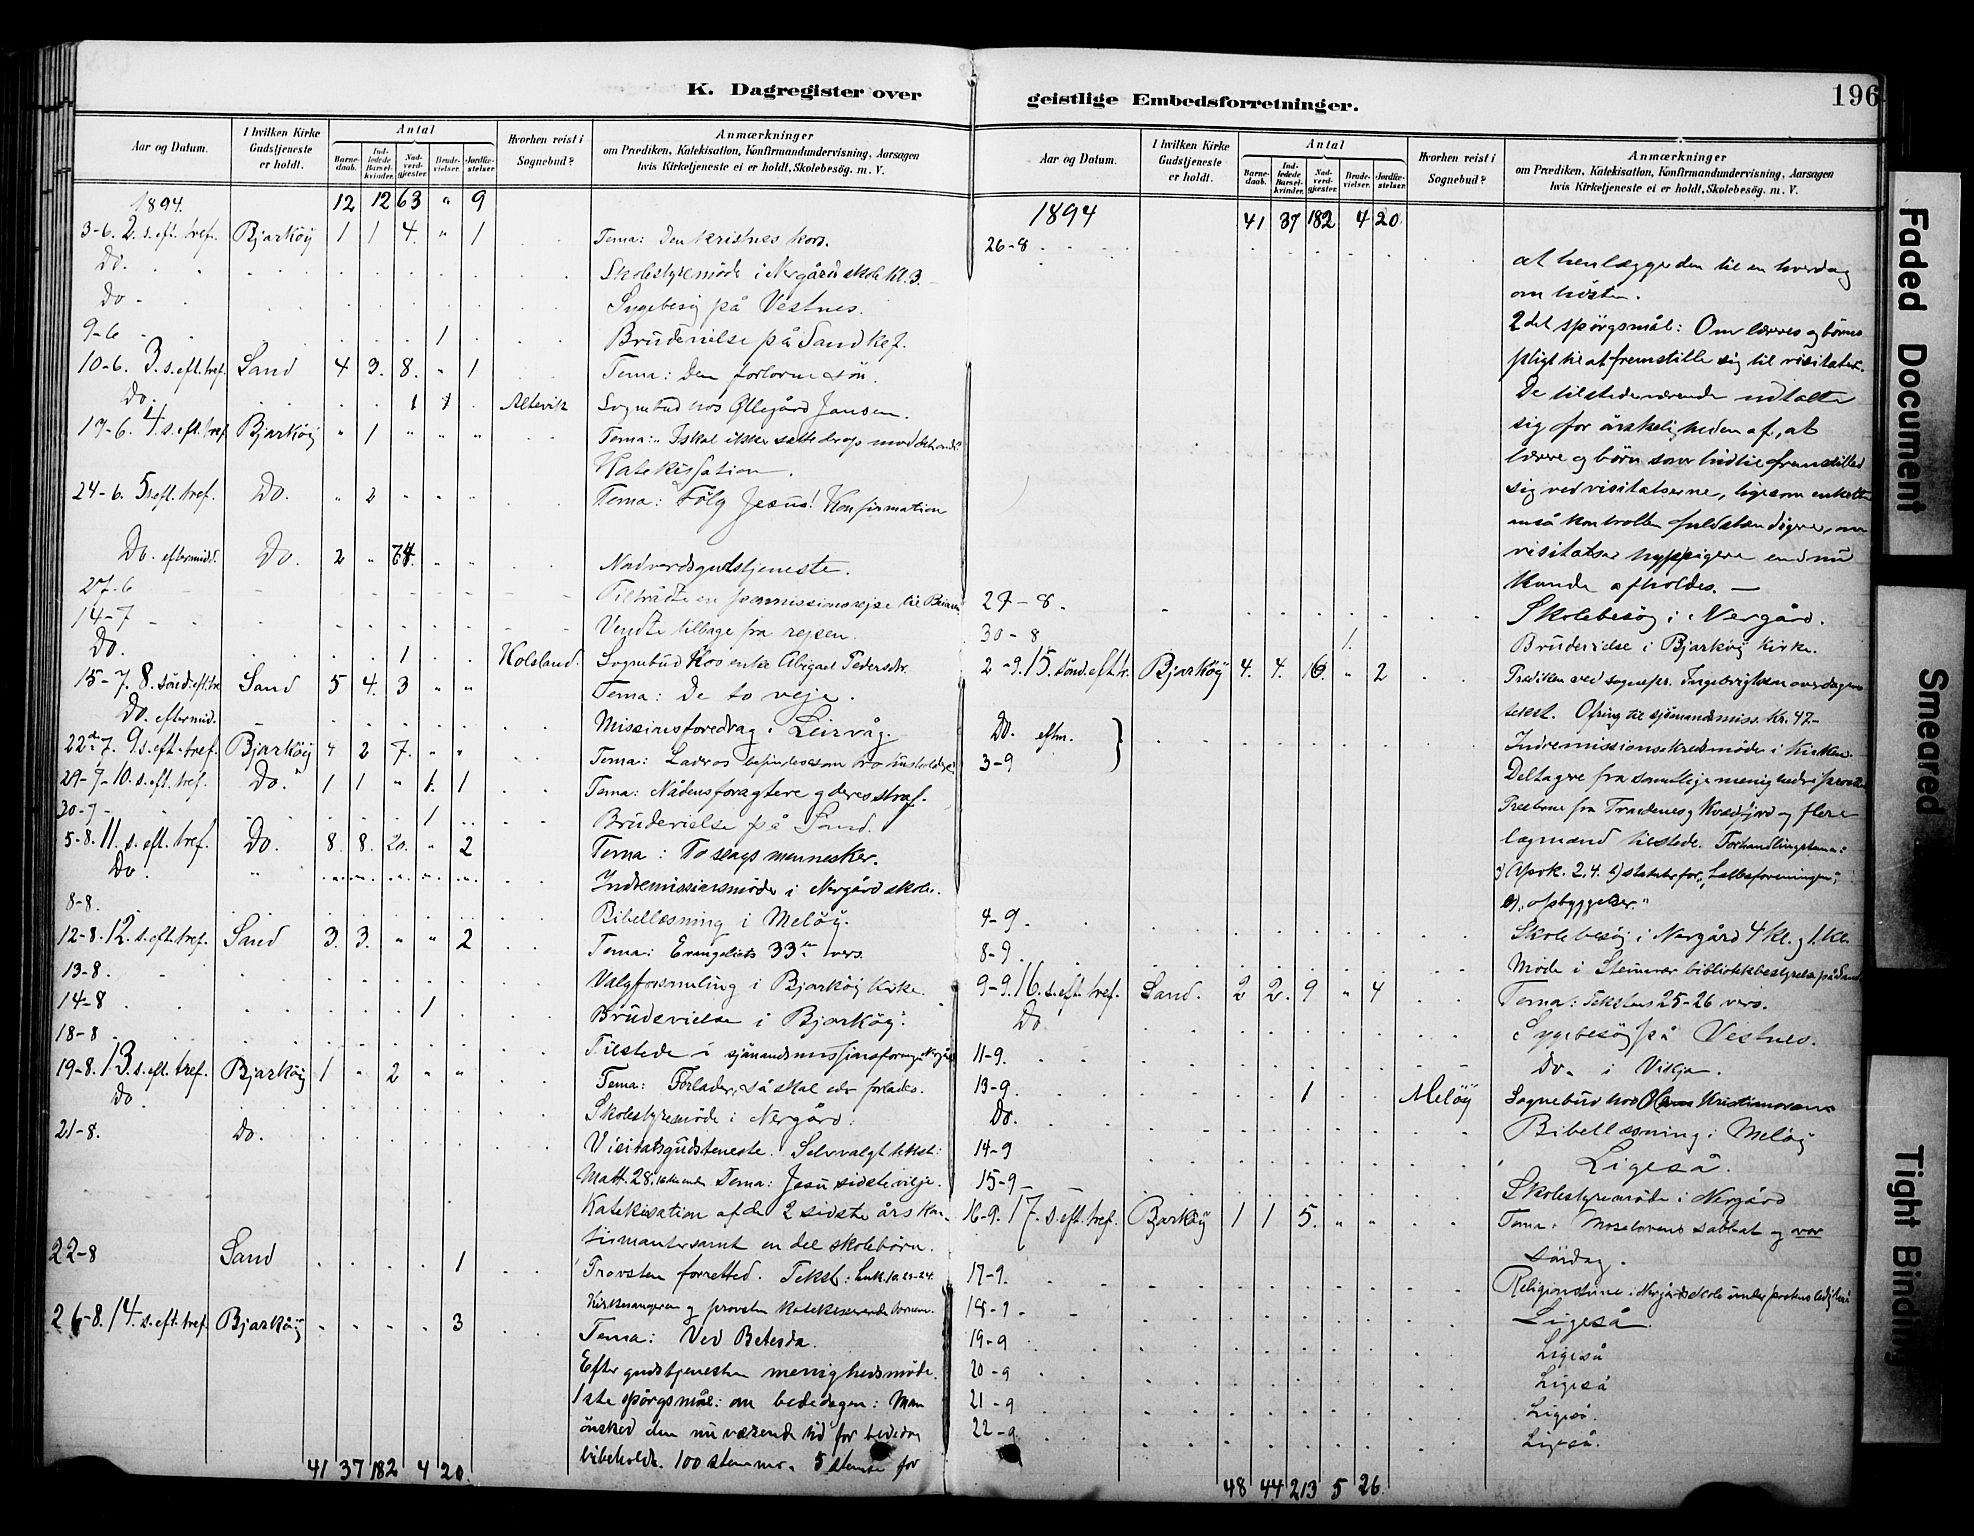 K. Dagregister over
Aar og Datum. I hvilken Kirke Gudstjeneste er holdt. Antal Barnedaab. Indledede Barselkvinder. Nadverdgjester. Brudevielser. Jordfæstelser. Hvorhen reist i Sognebud? Anmærkninger
om Prædiken, Katekisation, Konfirmandundervisning, Aarsagen
hvis Kirketjeneste ei er holdt, Skolebesög. m. V.
1894. 12 12 63 " 9
3-6. 2. s. eft. tref. Bjarköy 1 1 4. " 1 Tema: Den kristnes kors.
Do. Skolestyremöde i Nergård skole kl. 3.
Do Sygebesög på Vestnes.
9-6 1 Brudevielse på Sand
10-6. 3. s. eft. tref. Sand 4 3. 8. " 1 Tema: Den forlorne sön.
Do. 1 1 Altevik Sognebud hos Ollegård Jansen.
17-6. 4. s. eft. tref Bjarköy " 1 " " " Tema: I skal ikke
Katekisation.
24-6. 5 s. eft. tref. Do. " 2 " " " Tema: Fölg Jesus! Konfirmation
Do. eftermidd. Do. 2 " 74. " " Nadverdsgudstjeneste.
27-6 Tiltrådte en
14-7 Vendte tilbage fra rejsen.
Do. 1 Kolsland. Sognebud hos enke Abigael Pedersdtr.
15-7. 8. sönd. eft. tre Sand 5 4. 3 " " Tema: De to veje.
Do. eftermid. Missionsforedrag i Leirvåg.
22-7. 9 s. eft. tref. Bjarköy 4 2 7. " " Tema: Lad os
29-7-10. s. eft. tref. Do. 1 1 " 1. 1 Tema: Nådens foragtere og deres straf.
30-7- 1 Brudevielse på Sand.
5-8. 11. s. eft. tref. Do. 8. 8. 20. " 2 Tema: To slags mennesker.
Do. Indremissionsmöde i Nergård skole.
8-8. Bibellæsning i Melöy.
12-8. 12. s. eft. tref. Sand 3. 3. " " 2 Tema: Evangeliets 33te vers.
13-8. Valgforsamling i Bjarköy kirke.
14-8 1 Brudevielse i Bjarköy.
18-8. Tilstede i sjömandsmissionsforening
19-8. 13. s. eft. tref. Bjarköy 1 " 2 " " Tema: Forlader, så skal eder forlades.
Do. Skolestyremöde i Nergård.
21-8. Do. Visitatsgudstjeneste. Selvvalgt tekst:
Matt. 28. Tema: Jesu sidste vilje.
Katekisation af de 2 sidste års kon-
firmanter samt en del skolebörn.
22-8 Sand 1 Provsten forretted. Tekst: Luk. 10. 23-24.
Kirkesangeren og provsten katekiserede börnene.
26-8. 14. s. eft. tref. Bjarköy 3 Tema: Ved Betesda.
Efter gudstjenesten menighedsmöde.
1ste spörgsmål: om bededagen: Man
önsked den nu værende tid for bededag
bibeholdt. 100 stemmer. 5 stemte for
41 37 182 4 20.
geistlige Embedsforretninger. 196
Aar og Datum. I hvilken Kirke Gudstjeneste er holdt. Antal Barnedaab. Indledede Barselkvinder. Nadverdgjester. Brudevielser. Jordfæstelser. Hvorhen reist i Sognebud? Anmærkninger
om Prædiken, Katekisation, Konfirmandundervisning, Aarsagen
hvis Kirketjeneste ei er holdt, Skolebesög. m. V.
1894 41 37 182 4 20
26-8 at henlægge den til en hverdag
om hösten.
2det spörgsmål: Om læreres og börns
pligt til at fremstille sig til visitatser.
De tilstedeværende udtalte
sig for önskeligheden af, at
lærere og börn som hidtil fremstilled
sig ved visitatserne, ligesom
kontrollen fuldstændigere, om
visitatser hyppigere end nu
kunde afholdes. —
27-8. Skolebesög i Nergård.
30-8 1. Brudevielse i Bjarköy kirke.
2-9. 15. sönd. eft. tr. Bjarköy 4. 4. 16. " 2 Prediken ved sognepr. Ingebrigtsen over dagens
tekst. Ofring til sjömandsmiss. Kr. 47-
Do. eftm. Indremissionskredsmöde i kirken.
3-9 Deltagere fra samtlige menigheder i provstiet
Presterne fra Trondenes og Kvædfjord og flere
lægmænd tilstede. Forhandlingstema:
Apok. 2,4. statuter for
"opbyggelser."
4-9 Skolebesög i Nergård 4 kl. og 1. kl.
8-9 Möde i Steinavær bibliotekbestyrelse på Sand
9-9. 16. s. eft. tref. Sand. 2 2. 9 " 4 Tema: Tekstens 25-26 vers.
Do Sygebesög på Vestnes.
11-9. do. i Vikja.
13-9. 1 Melöy Sognebud hos Kristiansens
Do. Bibellæsning i Melöy
14-9 Ligeså.
15-9 Skolestyremöde i Nergård
16-9. 17. s. eft. tref. Bjarköy 1 1 5. " " Tema: Moselovens sabbat og vor
söndag.
17-9. Religionstime i Nergårds skole under
18-9 Ligeså.
19-9 Ligeså
20-9 Ligeså
21-9 Ligeså.
22-9 Ligeså.
48 44 213 5 26.
Faded Document
Smeared
Tight Binding